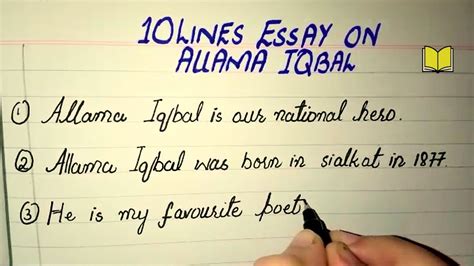 10 LINES ESSAY ON
ALLAMA IQBAL
① Allama Iqbal is our national hero.
② Allama Iqbal was born in sialkat in 1877.
③ He is my favourite poet